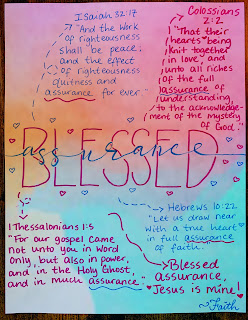 Isaiah 32:17
"And the work
of righteousness
shall be peace;
and the effect
of righteousness
quitness and
assurance for ever."
Colossians
2:2
"That their
hearts being
knit together
in love, and
unto all riches
of the full
assurance of
understanding,
to the acknowledge-
ment of the mystery
of God."
BLESSED
assurance
1 Thessalonians 1:5
"For our gospel came
not unto you in word
only, but also in power,
and in the Holy Ghost,
and in much assurance."
Hebrews 10:22
"Let us draw near
with a true heart
in full assurance
of faith.
Blessed
assurance,
Jesus is mine!
Faith